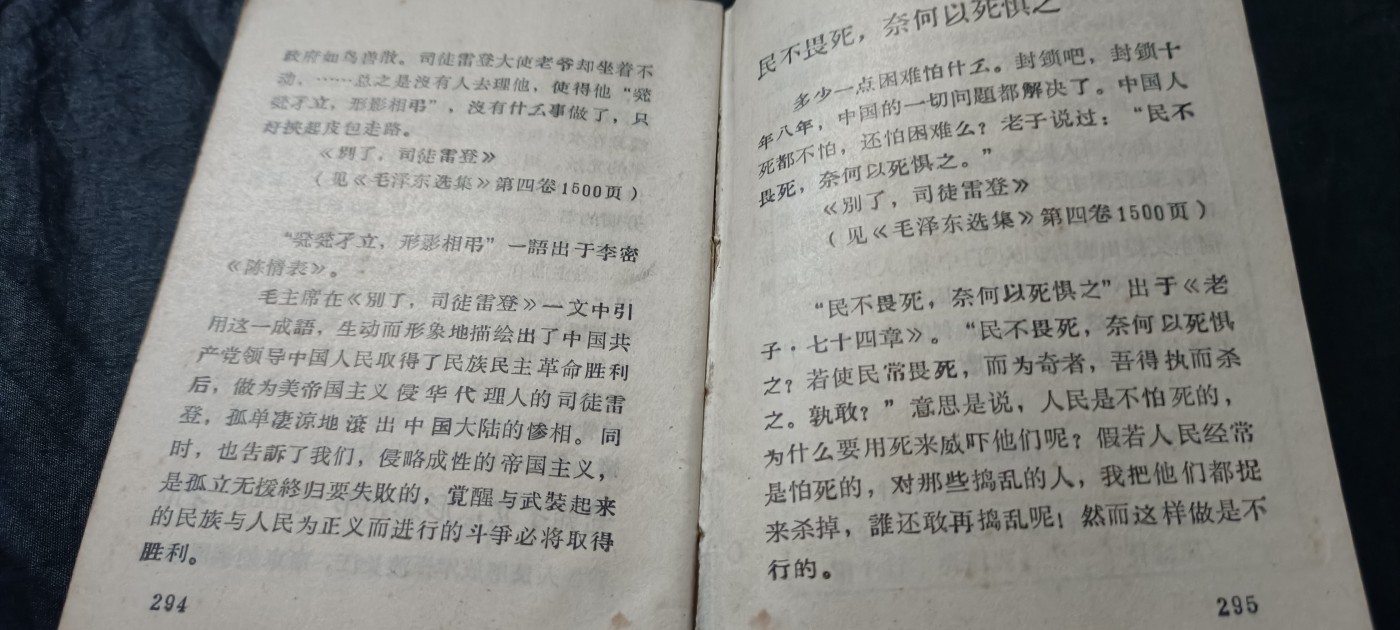 政府如鸟兽散。司徒雷登大使老爷却坐着不
动，……总之是沒有人去理他，使得他“煢
煢孑立，形影相弔”，沒有什么事做了，只
好挾起皮包走路。
《別了，司徒雷登》
（见《毛泽东选集》第四卷1500页）
“煢煢孑立，形影相弔”一語出于李密
《陈情表》。
毛主席在《別了，司徒雷登》一文中引
用这一成語，生动而形象地描绘出了中国共
产党领导中国人民取得了民族民主革命胜利
后，做为美帝国主义侵华代理人的司徒雷
登，孤单凄凉地滾出中国大陆的惨相。同
时，也告訴了我们，侵略成性的帝国主义，
是孤立无援終归要失敗的，覚醒与武裝起来
的民族与人民为正义而进行的斗爭必将取得
胜利。
294
民不畏死，奈何以死惧之
多少一点困难怕什么。封锁吧，封锁十
年八年，中国的一切问題都解决了。中国人
死都不怕，还怕困难么？老子说过：“民不
畏死，奈何以死惧之。”
《別了，司徒雷登》
（见《毛泽东选集》第四卷1500页）
“民不畏死，奈何以死惧之”出于《老
子·七十四章》。“民不畏死，奈何以死惧
之？若使民常畏死，而为奇者，吾得执而杀
之。孰敢？”意思是说，人民是不怕死的，
为什么要用死来威吓他们呢？假若人民经常
是怕死的，对那些搗乱的人，我把他们都捉
来杀掉，誰还敢再搗乱呢！然而这样做是不
行的。
295